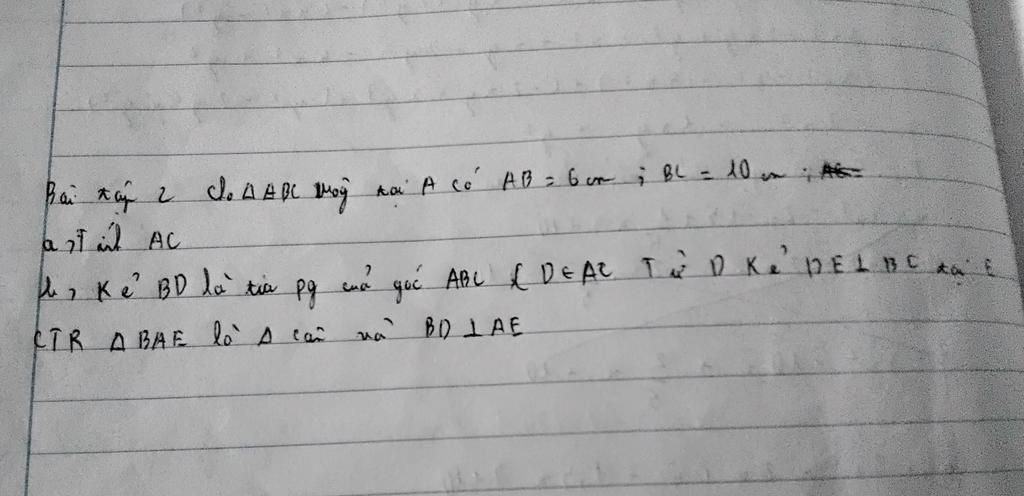 Bài tập 2 Cho △ABC vuông tại A có AB = 6 cm ; BC = 10 cm ;
a, Tính AC
b, Kẻ BD là tia pg của góc ABC ( D ∈ AC Từ D Kẻ DE ⊥ BC tại E
CTR △ BAE là △ cân và BD ⊥ AE